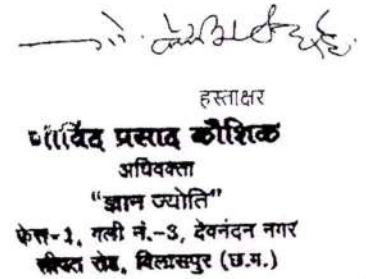 हस्ताक्षर
प्रसाद कौशिक
अधिवक्ता
"ज्ञान ज्योति"
फेस-1, गली नं.-3, देवनंदन नगर
रोड, बिलासपुर (छ.ग.)